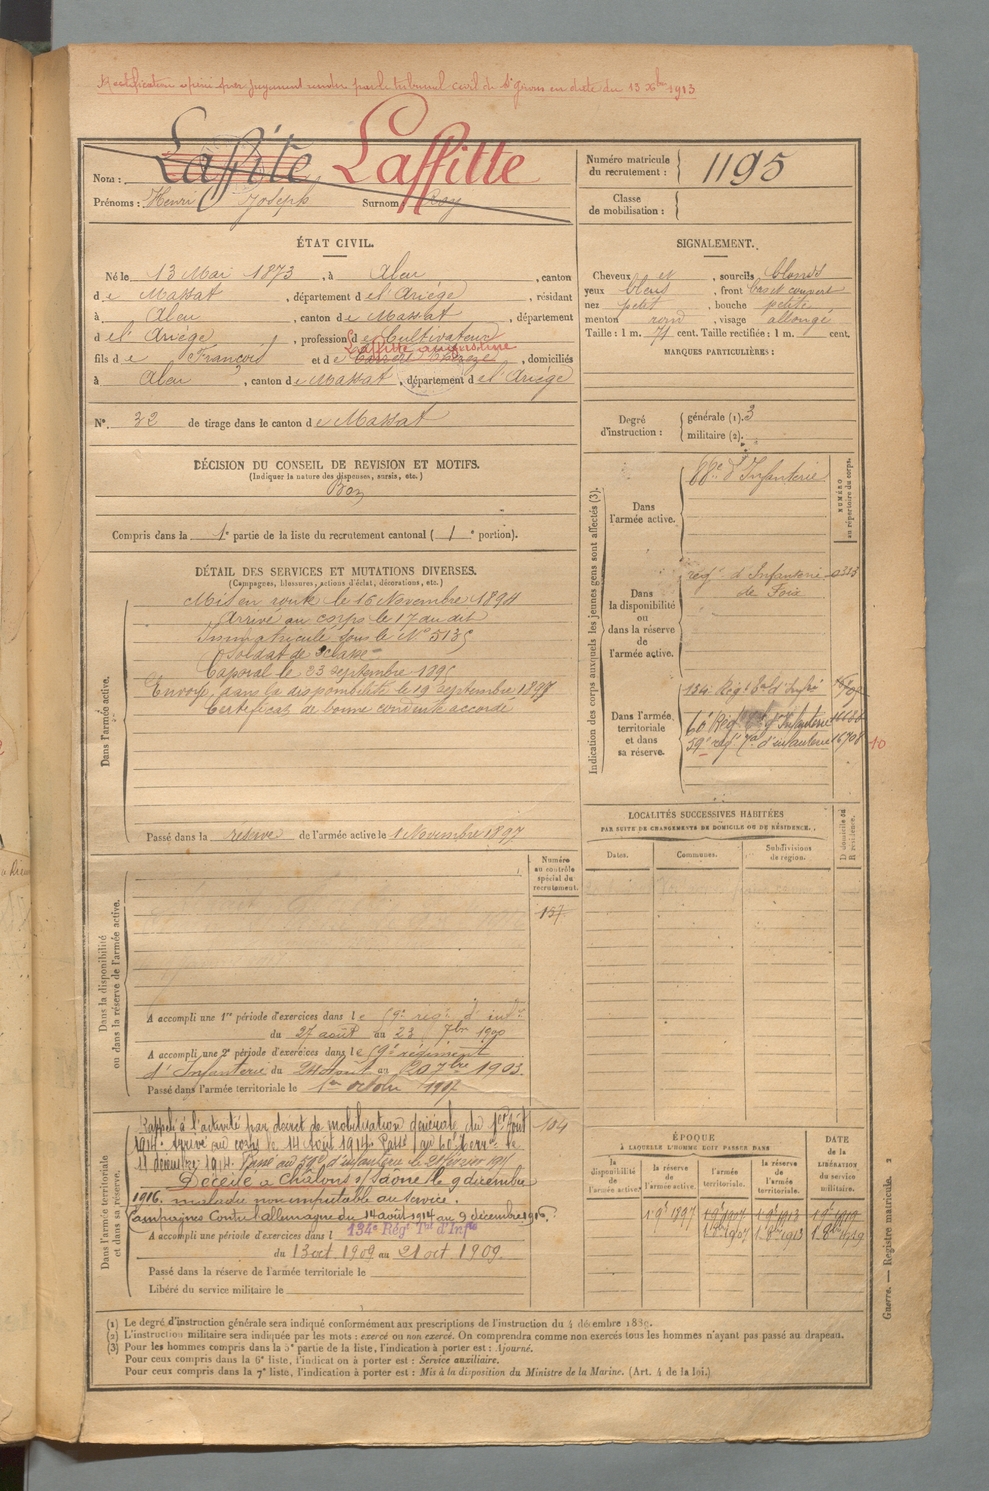 Rectification opérée par jugement rendu par le tribunal civil de St Girons en date du 13 Xbre 1913
Nom : Laffite Laffitte
Prénoms : Henri Joseph Surnom :
Numéro matricule du recrutement : 1195
Classe de mobilisation :
ÉTAT CIVIL.
Né le 13 Mai 1873, à Aleu, canton
de Massat, département de l'Ariège, résidant
à Aleu, canton de Massat, département
de l'Ariège, profession de Cultivateur
Laffitte
fils de François et de, domiciliés
à Aleu, canton de Massat, département de l'Ariège
N° 32 de tirage dans le canton de Massat
SIGNALEMENT.
Cheveux et, sourcils blonds
yeux bleus, front bas et couvert
nez petit, bouche petite
menton rond, visage allongé
Taille : 1 m. 71 cent. Taille rectifiée : 1 m. cent.
MARQUES PARTICULIÈRES :
Degré d'instruction : générale (1). 3
militaire (2).
DÉCISION DU CONSEIL DE REVISION ET MOTIFS.
(Indiquer la nature des dispenses, sursis, etc.)
Bon
Compris dans la 1e partie de la liste du recrutement cantonal (1e portion).
DÉTAIL DES SERVICES ET MUTATIONS DIVERSES.
(Campagnes, blessures, actions d'éclat, décorations, etc.)
Dans l'armée active.
Mis en route le 16 Novembre 1894
Arrivé au corps le 17 au dit
Immatriculé sous le N° 5135
Soldat de 2e classe
Caporal le 23 septembre 1895
Envoyé dans la disponibilité le 19 septembre 1897
Certificat de bonne conduite accordé
Passé dans la réserve de l'armée active le 1 Novembre 1897
Indication des corps auxquels les jeunes gens sont affectés (3).
NUMÉRO au répertoire du corps.
Dans l'armée active.
d'Infanterie
Dans la disponibilité ou dans la réserve de l'armée active.
rég' d'Infanterie 0313
de Foix
Dans l'armée territoriale et dans sa réserve.
134e Régt d'Infie
60e Régt d'Infanterie
59e régt d'infanterie 16708
10
LOCALITÉS SUCCESSIVES HABITÉES
PAR SUITE DE CHANGEMENTS DE DOMICILE OU DE RÉSIDENCE.
Dates. Communes. Subdivisions de région. D domicile ou R résidence.
Dans la disponibilité ou dans la réserve de l'armée active.
Numéro au contrôle spécial du recrutement.
137
A accompli une 1re période d'exercices dans le 59e régt d'infie
du 27 août au 23 7bre 1900
A accompli une 2e période d'exercices dans le 59e régiment
d'Infanterie du 24 Août au 20 7bre 1903.
Passé dans l'armée territoriale le 1er octobre 1907
Dans l'armée territoriale et dans sa réserve.
Rappelé à l'activité par décret de mobilisation générale du 1er Août
1914. Arrivé au corps le 14 Août 1914. Passé au 60e Terral le
11 décembre 1914. Passé au 59e d'infanterie le 21 février
Décédé à Châlons s/ Saône le 9 décembre
1916. maladie non imputable au service.
Campagnes Contre l'allemagne du 14 août 1914 au 9 décembre 1916.
A accompli une période d'exercices dans l 134e Régt Tal d'Infie
du 13 oct. 1909 au 21 oct. 1909.
Passé dans la réserve de l'armée territoriale le
Libéré du service militaire le
ÉPOQUE
À LAQUELLE L'HOMME DOIT PASSER DANS
la disponibilité de l'armée active. la réserve de l'armée active. l'armée territoriale. la réserve de l'armée territoriale.
DATE DE LA LIBÉRATION du service militaire.
1 9e 1897
1 8bre 1907 1 8bre 1913 1 8bre 1919
(1) Le degré d'instruction générale sera indiqué conformément aux prescriptions de l'instruction du 4 décembre 1889.
(2) L'instruction militaire sera indiquée par les mots : exercé ou non exercé. On comprendra comme non exercés tous les hommes n'ayant pas passé au drapeau.
(3) Pour les hommes compris dans la 5e partie de la liste, l'indication à porter est : Ajourné.
Pour ceux compris dans la 6e liste, l'indication à porter est : Service auxiliaire.
Pour ceux compris dans la 7e liste, l'indication à porter est : Mis à la disposition du Ministre de la Marine. (Art. 4 de la loi.)
Guerre. — Registre matricule. 2